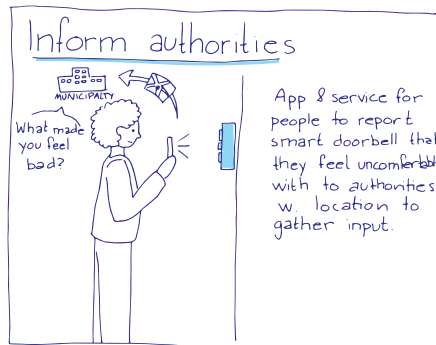 Inform authorities
MUNICIPALTY
What made
you feel
bad?
App & service for
people to report
smart doorbell that
they feel uncomfertable
with to authorities
w. location to
gather input.